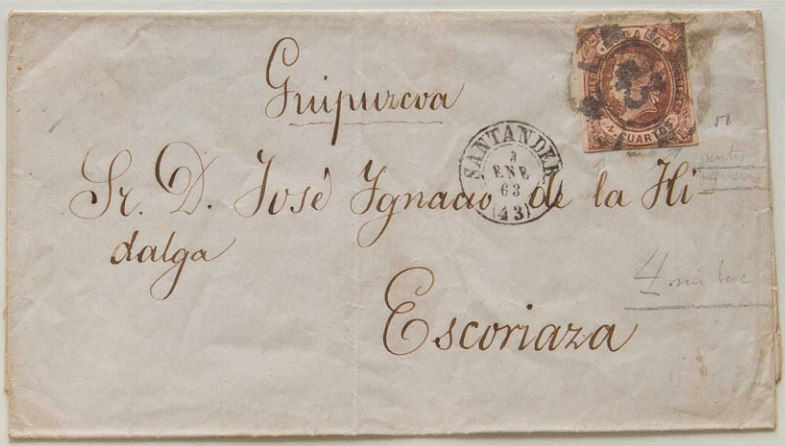 Guipuzcoa
ESPAÑA
4 CUARTOS
SANTANDER
3
ENE
63
(43)
Sr. D. José Ignacio de la Hi-
dalga
Escoriaza
4